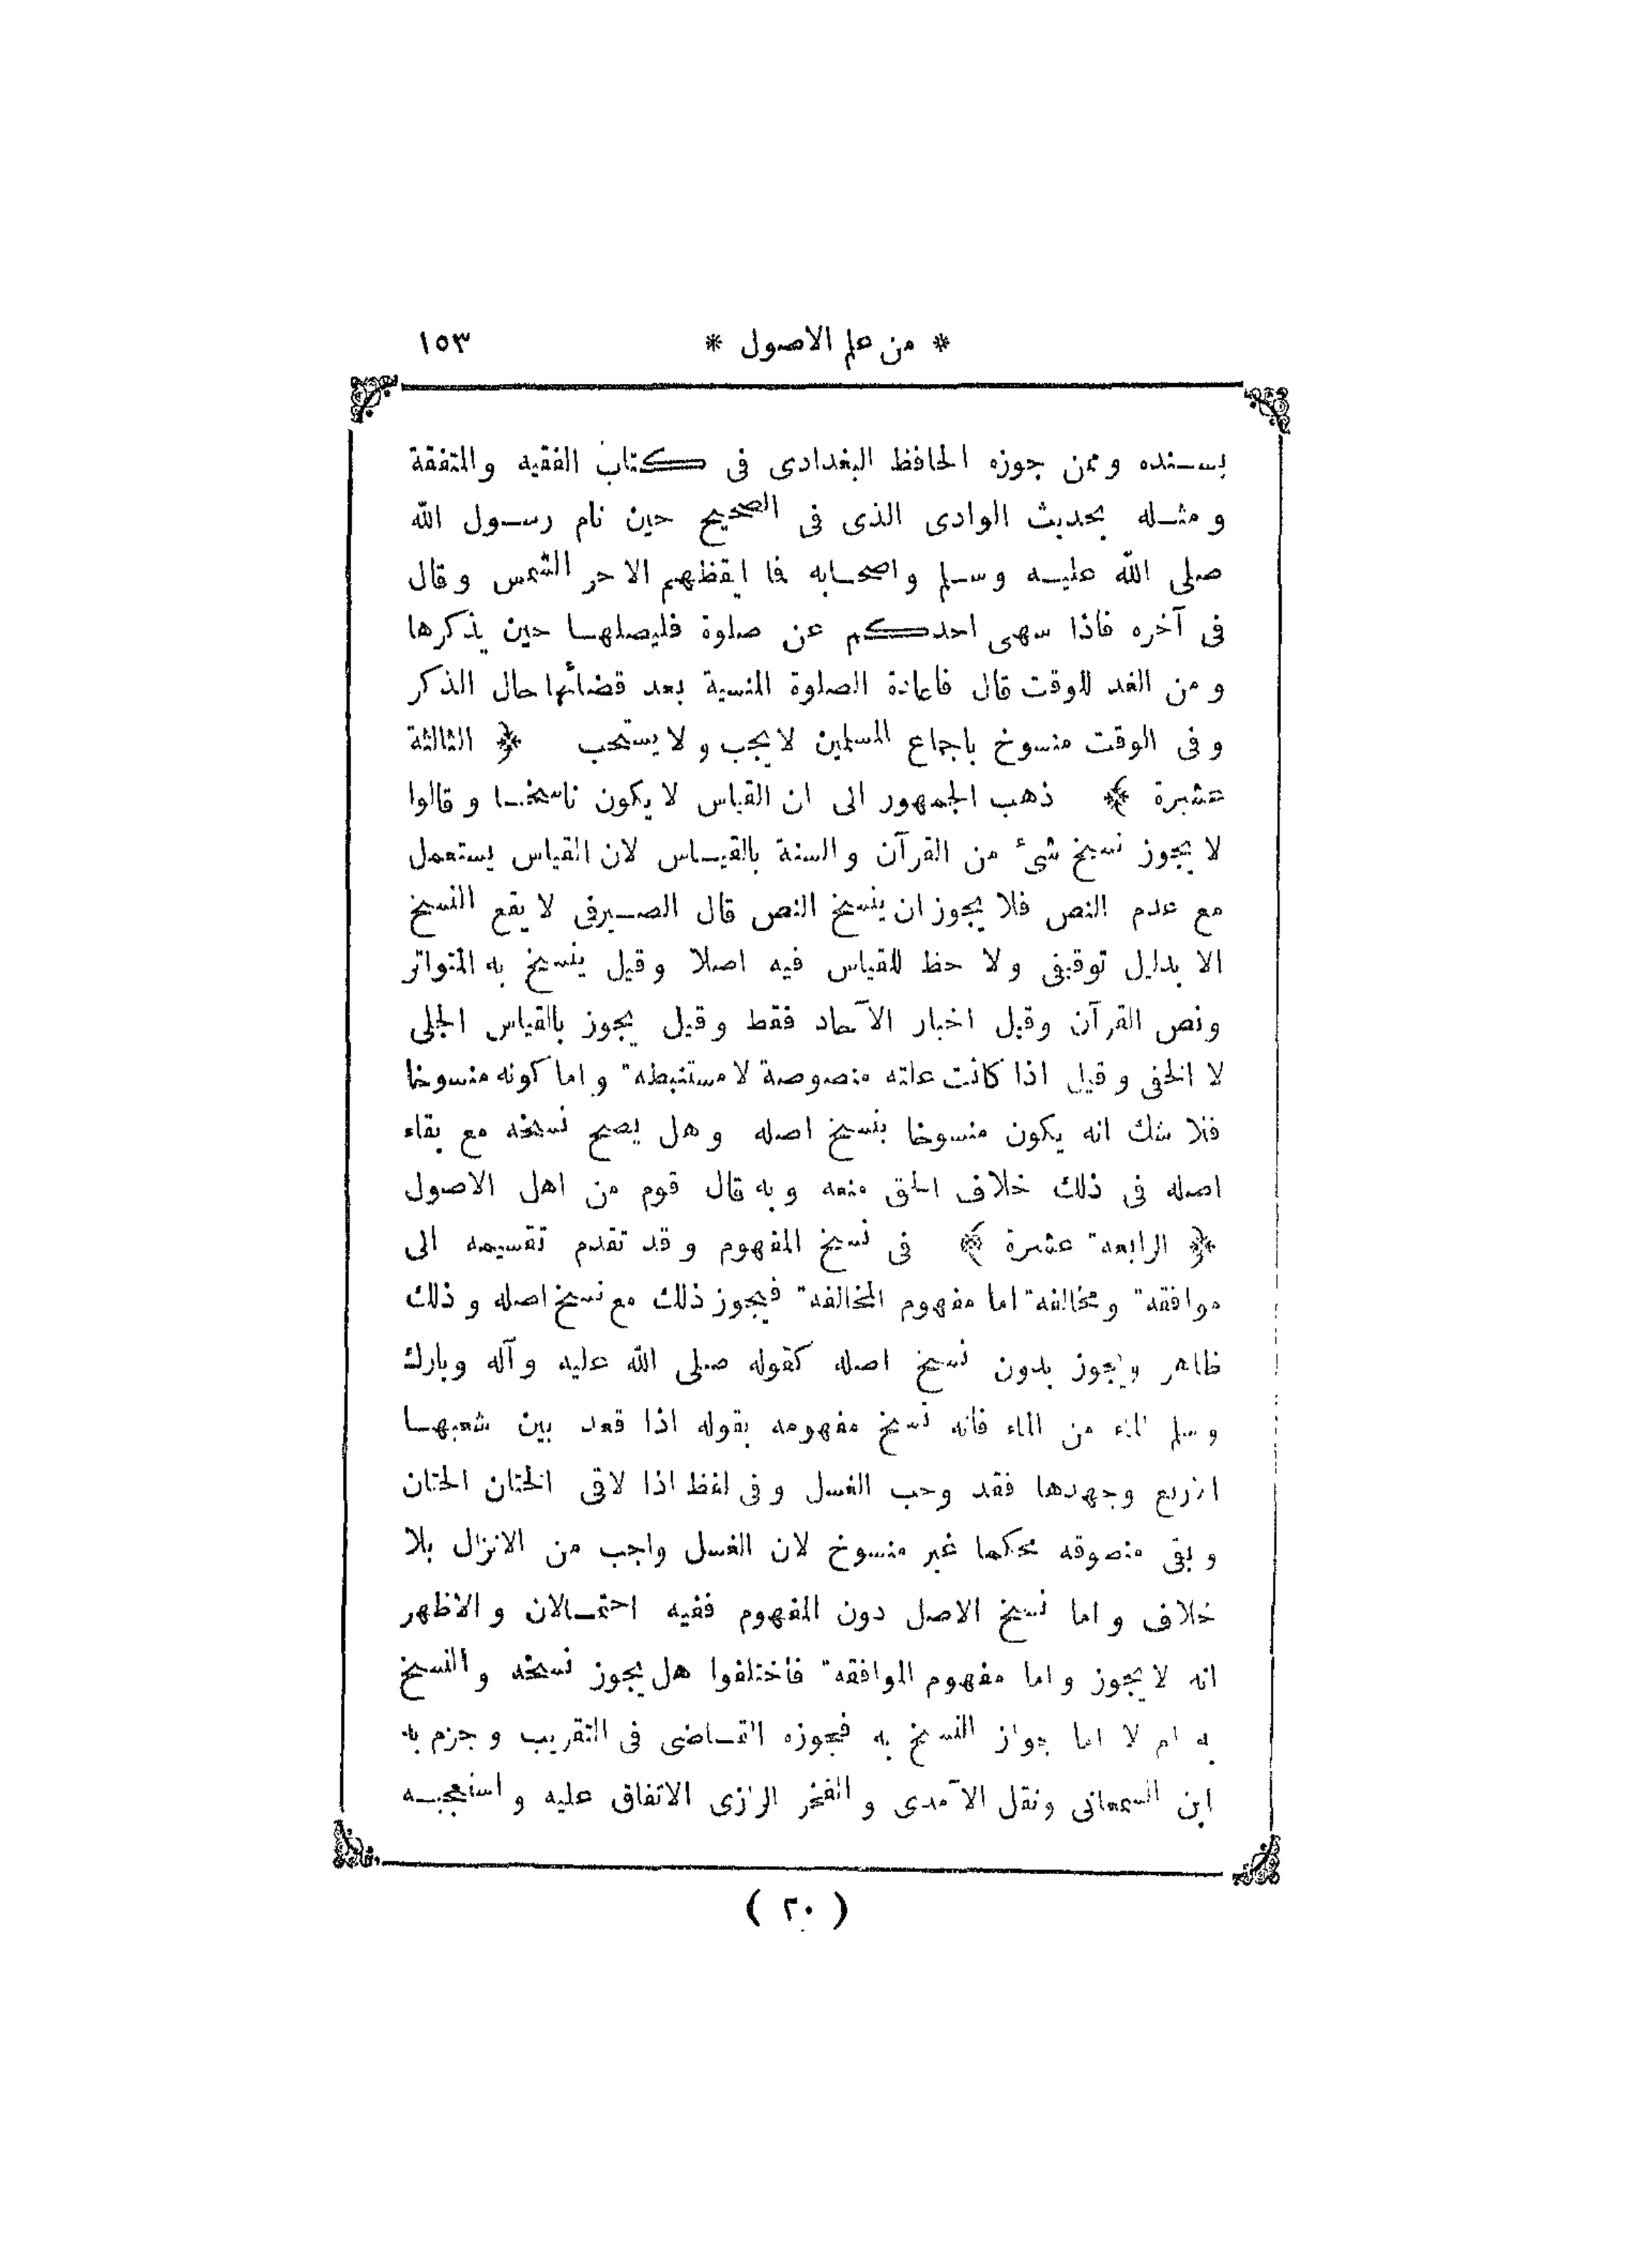 * من علم الاصول *  ١٥٣
بسنده وممن جوزه الحافظ البغدادى فى كتاب الفقيه والمتفقة
ومثله بحديث الوادى الذى فى الصحيح حين نام رسول الله
صلى الله عليه وسلم واصحابه فما ايقظهم الا حر الشمس وقال
فى آخره فاذا سهى احدكم عن صلوة فليصلها حين يذكرها
ومن الغد للوقت قال فاعادة الصلوة المنسية بعد قضائها حال الذكر
وفى الوقت منسوخ باجماع المسلمين لا يجب ولا يستحب ﴿ الثالثة
عشرة ﴾ ذهب الجمهور الى ان القياس لا يكون ناسخا وقالوا
لا يجوز نسخ شىء من القرآن والسنة بالقياس لان القياس يستعمل
مع عدم النص فلا يجوز ان ينسخ النص قال الصيرفى لا يقع النسخ
الا بدليل توقيفى ولا حظ للقياس فيه اصلا وقيل ينسخ به المتواتر
ونص القرآن وقيل اخبار الآحاد فقط وقيل يجوز بالقياس الجلى
لا الخفى وقيل اذا كانت علته منصوصة لا مستنبطة واما كونه منسوخا
فلا شك انه يكون منسوخا بنسخ اصله وهل يصح نسخه مع بقاء
اصله فى ذلك خلاف الحق منعه وبه قال قوم من اهل الاصول
﴿ الرابعة عشرة ﴾ فى نسخ المفهوم وقد تقدم تقسيمه الى
موافقة ومخالفة اما مفهوم المخالفة فيجوز ذلك مع نسخ اصله وذلك
ظاهر ويجوز بدون نسخ اصله كقوله صلى الله عليه وآله وبارك
وسلم الماء من الماء فانه نسخ مفهومه بقوله اذا قعد بين شعبها
الاربع وجهدها فقد وجب الغسل وفى لفظ اذا لاقى الختان الختان
وبقى منصوقه محكما غير منسوخ لان الغسل واجب من الانزال بلا
خلاف واما نسخ الاصل دون المفهوم ففيه احتمالان والاظهر
انه لا يجوز واما مفهوم الموافقة فاختلفوا هل يجوز نسخه والنسخ
به ام لا اما جواز النسخ به فجوزه القاضى فى التقريب وجزم به
ابن السمعانى ونقل الآمدى والفخر الرازى الاتفاق عليه واستعجبه
( ٢٠ )